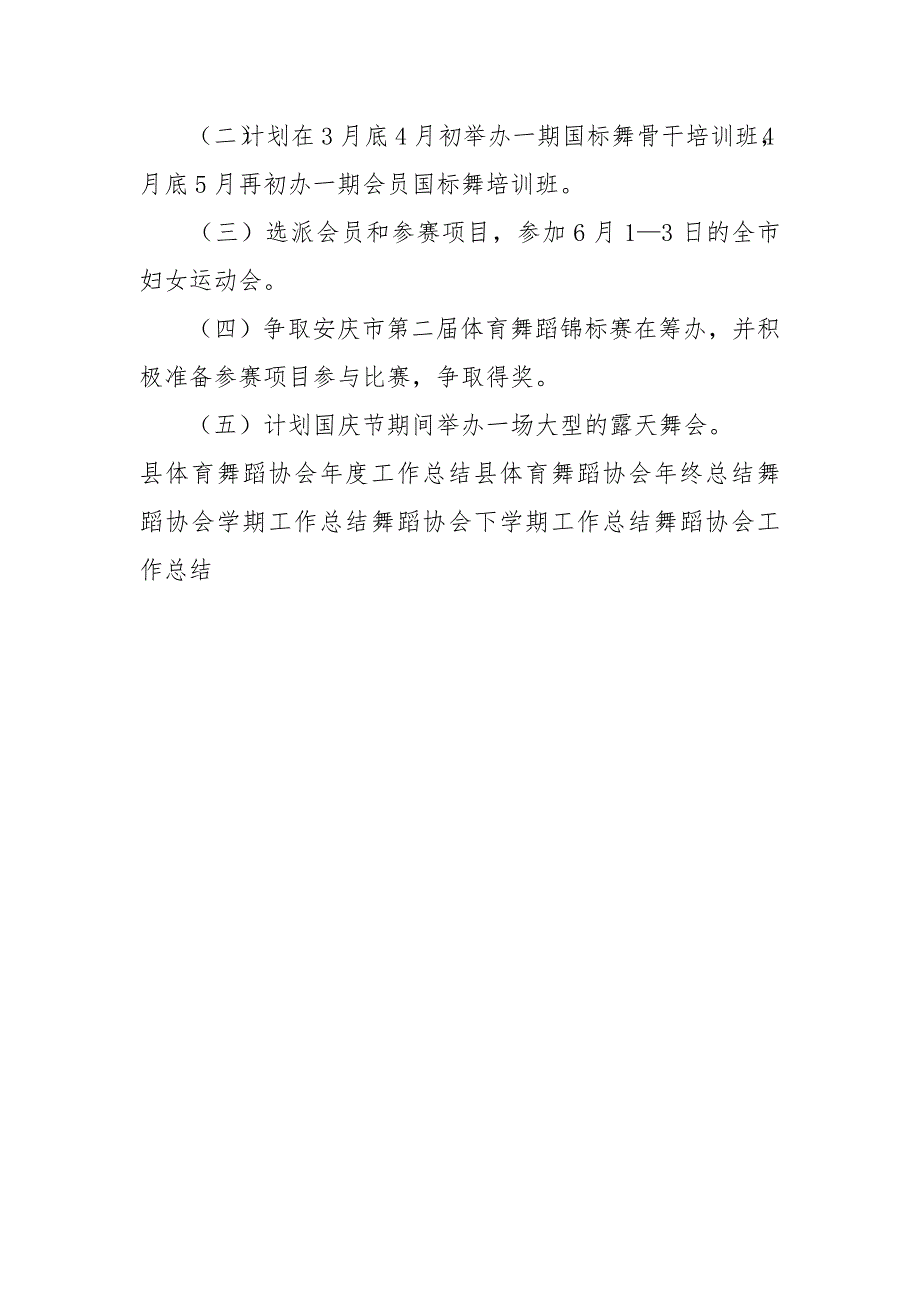 （二）计划在3月底4月初举办一期国标舞骨干培训班，4
月底5月再初办一期会员国标舞培训班。
（三）选派会员和参赛项目，参加6月1—3日的全市
妇女运动会。
（四）争取安庆市第二届体育舞蹈锦标赛在筹办，并积
极准备参赛项目参与比赛，争取得奖。
（五）计划国庆节期间举办一场大型的露天舞会。
县体育舞蹈协会年度工作总结县体育舞蹈协会年终总结舞
蹈协会学期工作总结舞蹈协会下学期工作总结舞蹈协会工
作总结